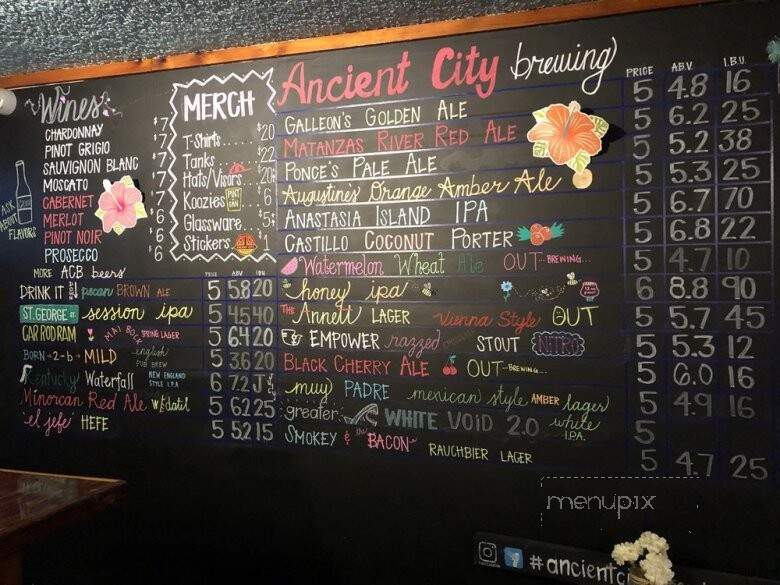 Wines
CHARDONNAY $7
PINOT GRIGIO $7
SAUVIGNON BLANC $7
MOSCATO $7
CABERNET $7
MERLOT $6
PINOT NOIR 6
PROSECCO 6
ASK ABOUT FLAVORS
MERCH
T-Shirts...... $20
Tanks........ $22
Hats/Visors. $20
Koozies PINT CAN $6
Glassware $5
Stickers. $1
Ancient City brewing
PRICE A.B.V. I.B.U.
GALLEON'S GOLDEN ALE 5 4.8 16
MATANZAS RIVER RED ALE 5 6.2 25
PONCE'S PALE ALE 5 5.2 38
Augustine's Orange Amber Ale 5 5.3 25
ANASTASIA ISLAND IPA 5 6.7 70
CASTILLO COCONUT PORTER 5 6.8 22
Watermelon Wheat Ale OUT BREWING... 5 4.7 10
honey ipa 6 8.8 90
THE Annett LAGER Vienna Style OUT 5 5.7 45
EMPOWER razzed STOUT NITRO 5 5.3 12
BLACK CHERRY ALE OUT BREWING... 5 6.0 16
muy PADRE mexican style AMBER lager 5 4.9 16
greater WHITE VOID 2.0 white I.P.A. 5
SMOKEY & the BACON RAUCHBIER LAGER 5 4.7 25
MORE ACB beers PRICE ABV IBU
DRINK IT pecan BROWN ALE 5 5.8 20
ST. GEORGE st session ipa 5 4.5 40
CAR ROD RAM MAI BOCK SPRING LAGER 5 6.4 20
BORN-2-b MILD english PUB BREW 5 3.6 20
Kentucky Waterfall NEW ENGLAND STYLE I.P.A 6 7.2
Minorcan Red Ale w/ datil 5 6.2 25
'el jefe' HEFE 5 5.2 15
menupix
#ancientci